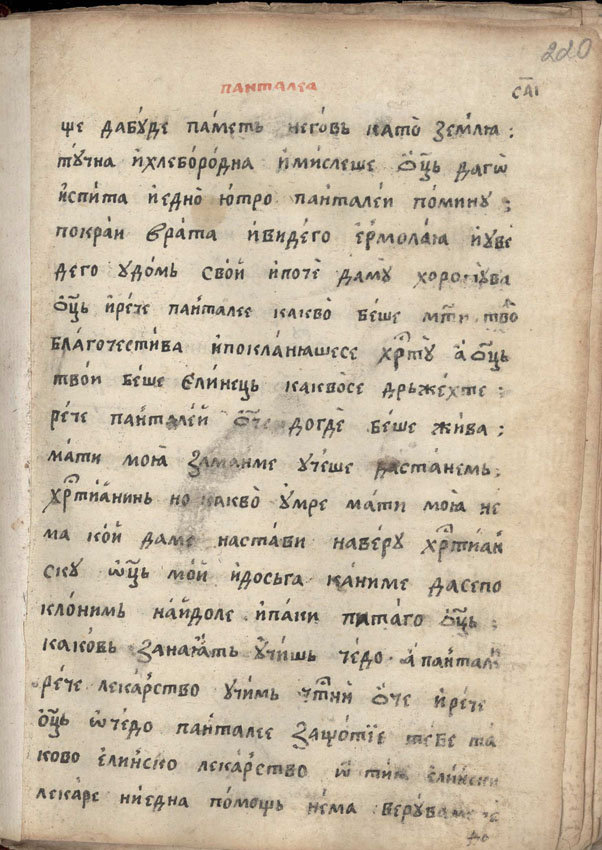 220
панталеа
са҃і
ще дабꙋ́де па́меть него́вь като̀ зе́млꙗ :
тꙋ́чна и҆хлеборо́дна и҆ми́слеше ѻ҆ц҃ь даго̀
и҆спи́та и҆едно̀ ю҆тро панта́леи по́минꙋ :
покра́и врата́ и҆ви́дего е҆рмола́ꙗ и҆ꙋве
дего ꙋдо́мь сво́й и҆почѐ да́мꙋ
ѻ҆ц҃ь и҆ре́че панта́лее какво̀ бе́ше мт҃и
бл҃гочести́ва и҆покла́нꙗшесе хрⷭ҇тꙋ̀ а҆ ѻ҆ц҃ь
тво́и бе́ше е҆ли́нець какво̀се дрьже́хте :
ре́че панта́лей ѻ҆́че догдѐ бе́ше жи́ва :
ма́ти мо́ꙗ зама́име ꙋче́ше даста́немь :
хрⷭ҇тиꙗ́нинь но какво̀ ꙋ҆́мре ма́ти мо́ꙗ не
ма ко́й даме наста́ви наве́рꙋ хрⷭ҇тиꙗ́н
скꙋ ѡ҆ц҃ь мо́й и҆досьга ка́ниме дасепо
кло́нимь на и҆доле и҆па́ки пита́го ѻ҆ц҃ь :
како́вь занаꙗ́ть ꙋ҆чи́шь че́до а҆ панталеи
ре́че лека́рство ꙋчи́мь чⷭ҇тни ѻ҆́че и҆ре́че
ѻ҆ц҃ь ѡ҆ че́до панта́лее защо́тїе те́бе та
ково е҆ли́нско лека́рство ѿ ти́ꙗ е҆ли́нски
лека́ре ни е҆дна по́мощь не́ма